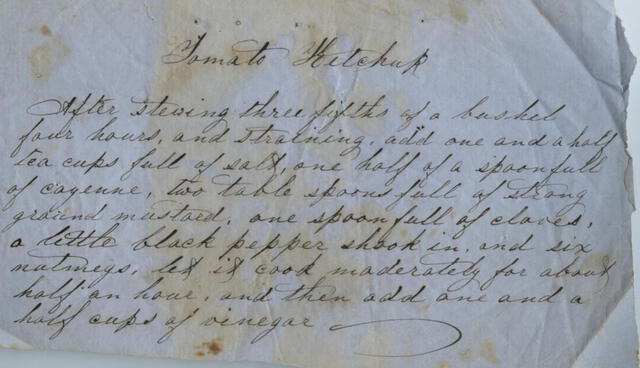 Tomato Ketchup
After stewing three fifths of a bushel
four hours, and straining, add one and a half
tea cups full of salt, one half of a spoonfull
of cayenne, two table spoons full of strong
ground mustard, one spoonfull of cloves,
a little black pepper shook in, and six
nutmegs, let it cook moderately for about
half an hour, and then add one and a
half cups of vinegar